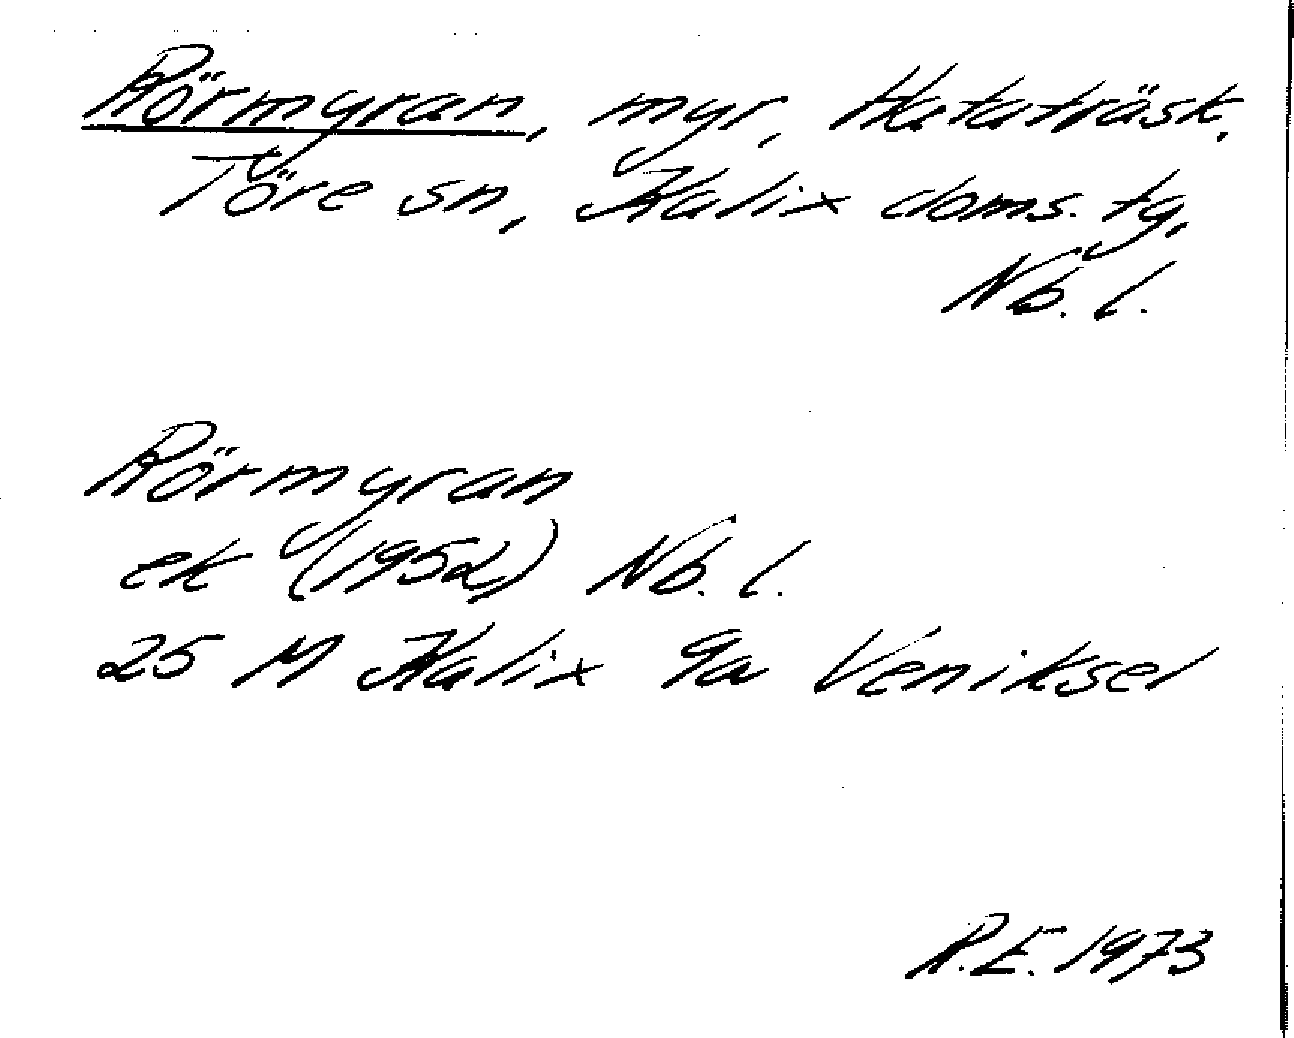 Rörmyran, myr, Hataträsk,
Töre sn, Kalix doms. tg,
Nb. l.
Rörmyran
ek (1952) Nb. l.
25 M Kalix 9a Veniksel
R.E. 1973